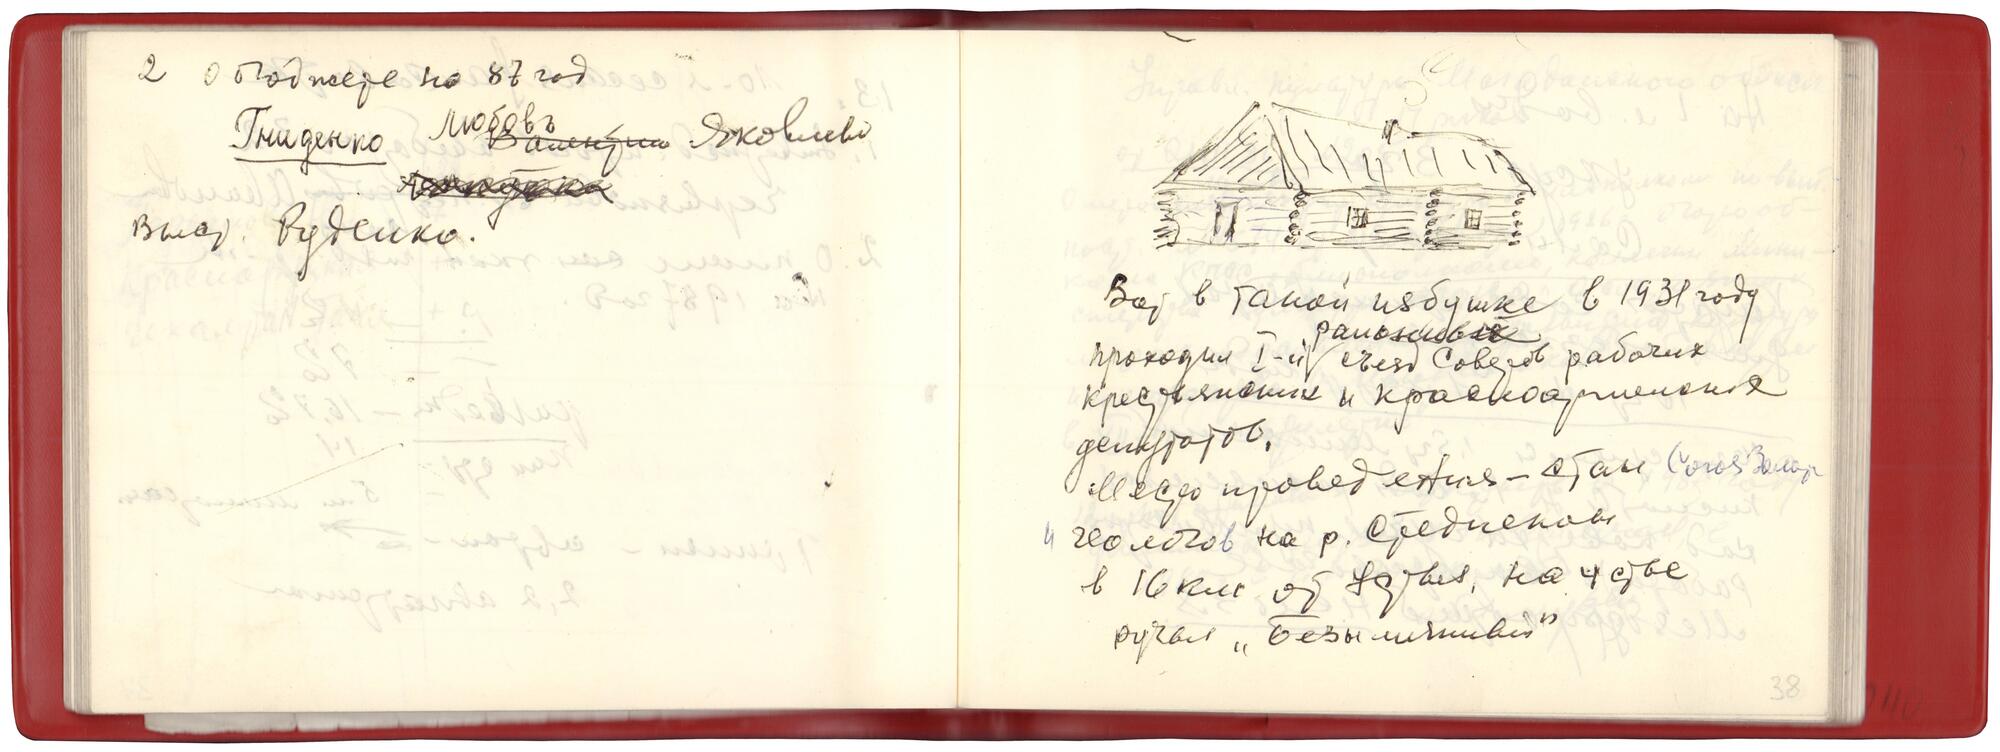 2 О бюджете на 87 год
Гниденко Любовь Валентин Яковлевн
Выст. Руденко.
Вот в такой избушке в 1931 году
районный
проходил I-й съезд Советов рабочих
крестьянских и красноармейских
депутатов.
Место проведения – стан Союззолот
и геологов на р. Среднекан
в 16 км от Устья, на устье
ручья „Безымянный"
38